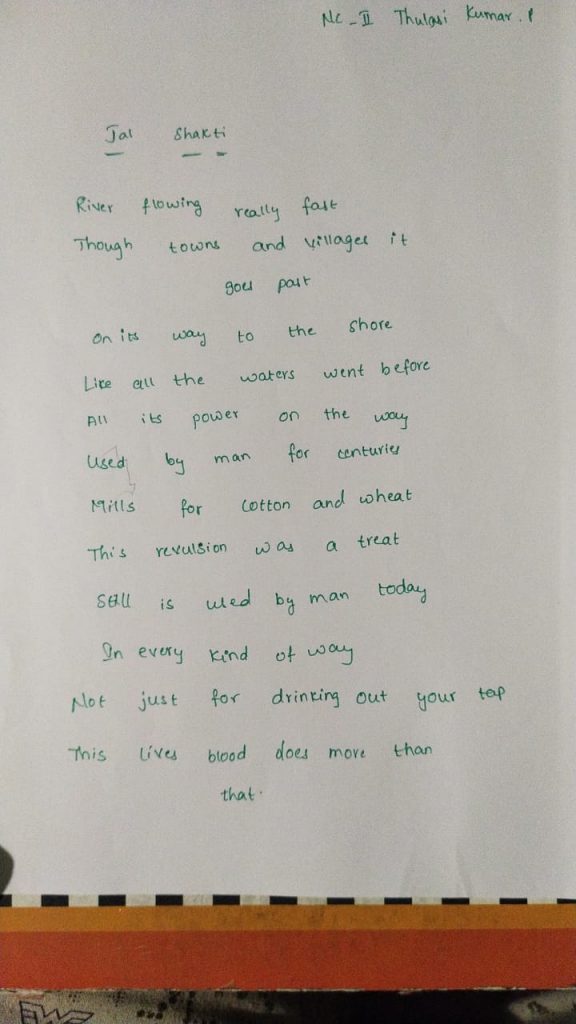 NC - II Thulasi Kumar . P
Jal Shakti
River flowing really fast
Though towns and villages it
goes past
On its way to the shore
Like all the waters went before
All its power on the way
Used by man for centuries
Mills for cotton and wheat
This revulsion was a treat
Still is used by man today
In every kind of way
Not just for drinking out your tap
This lives blood does more than
that.